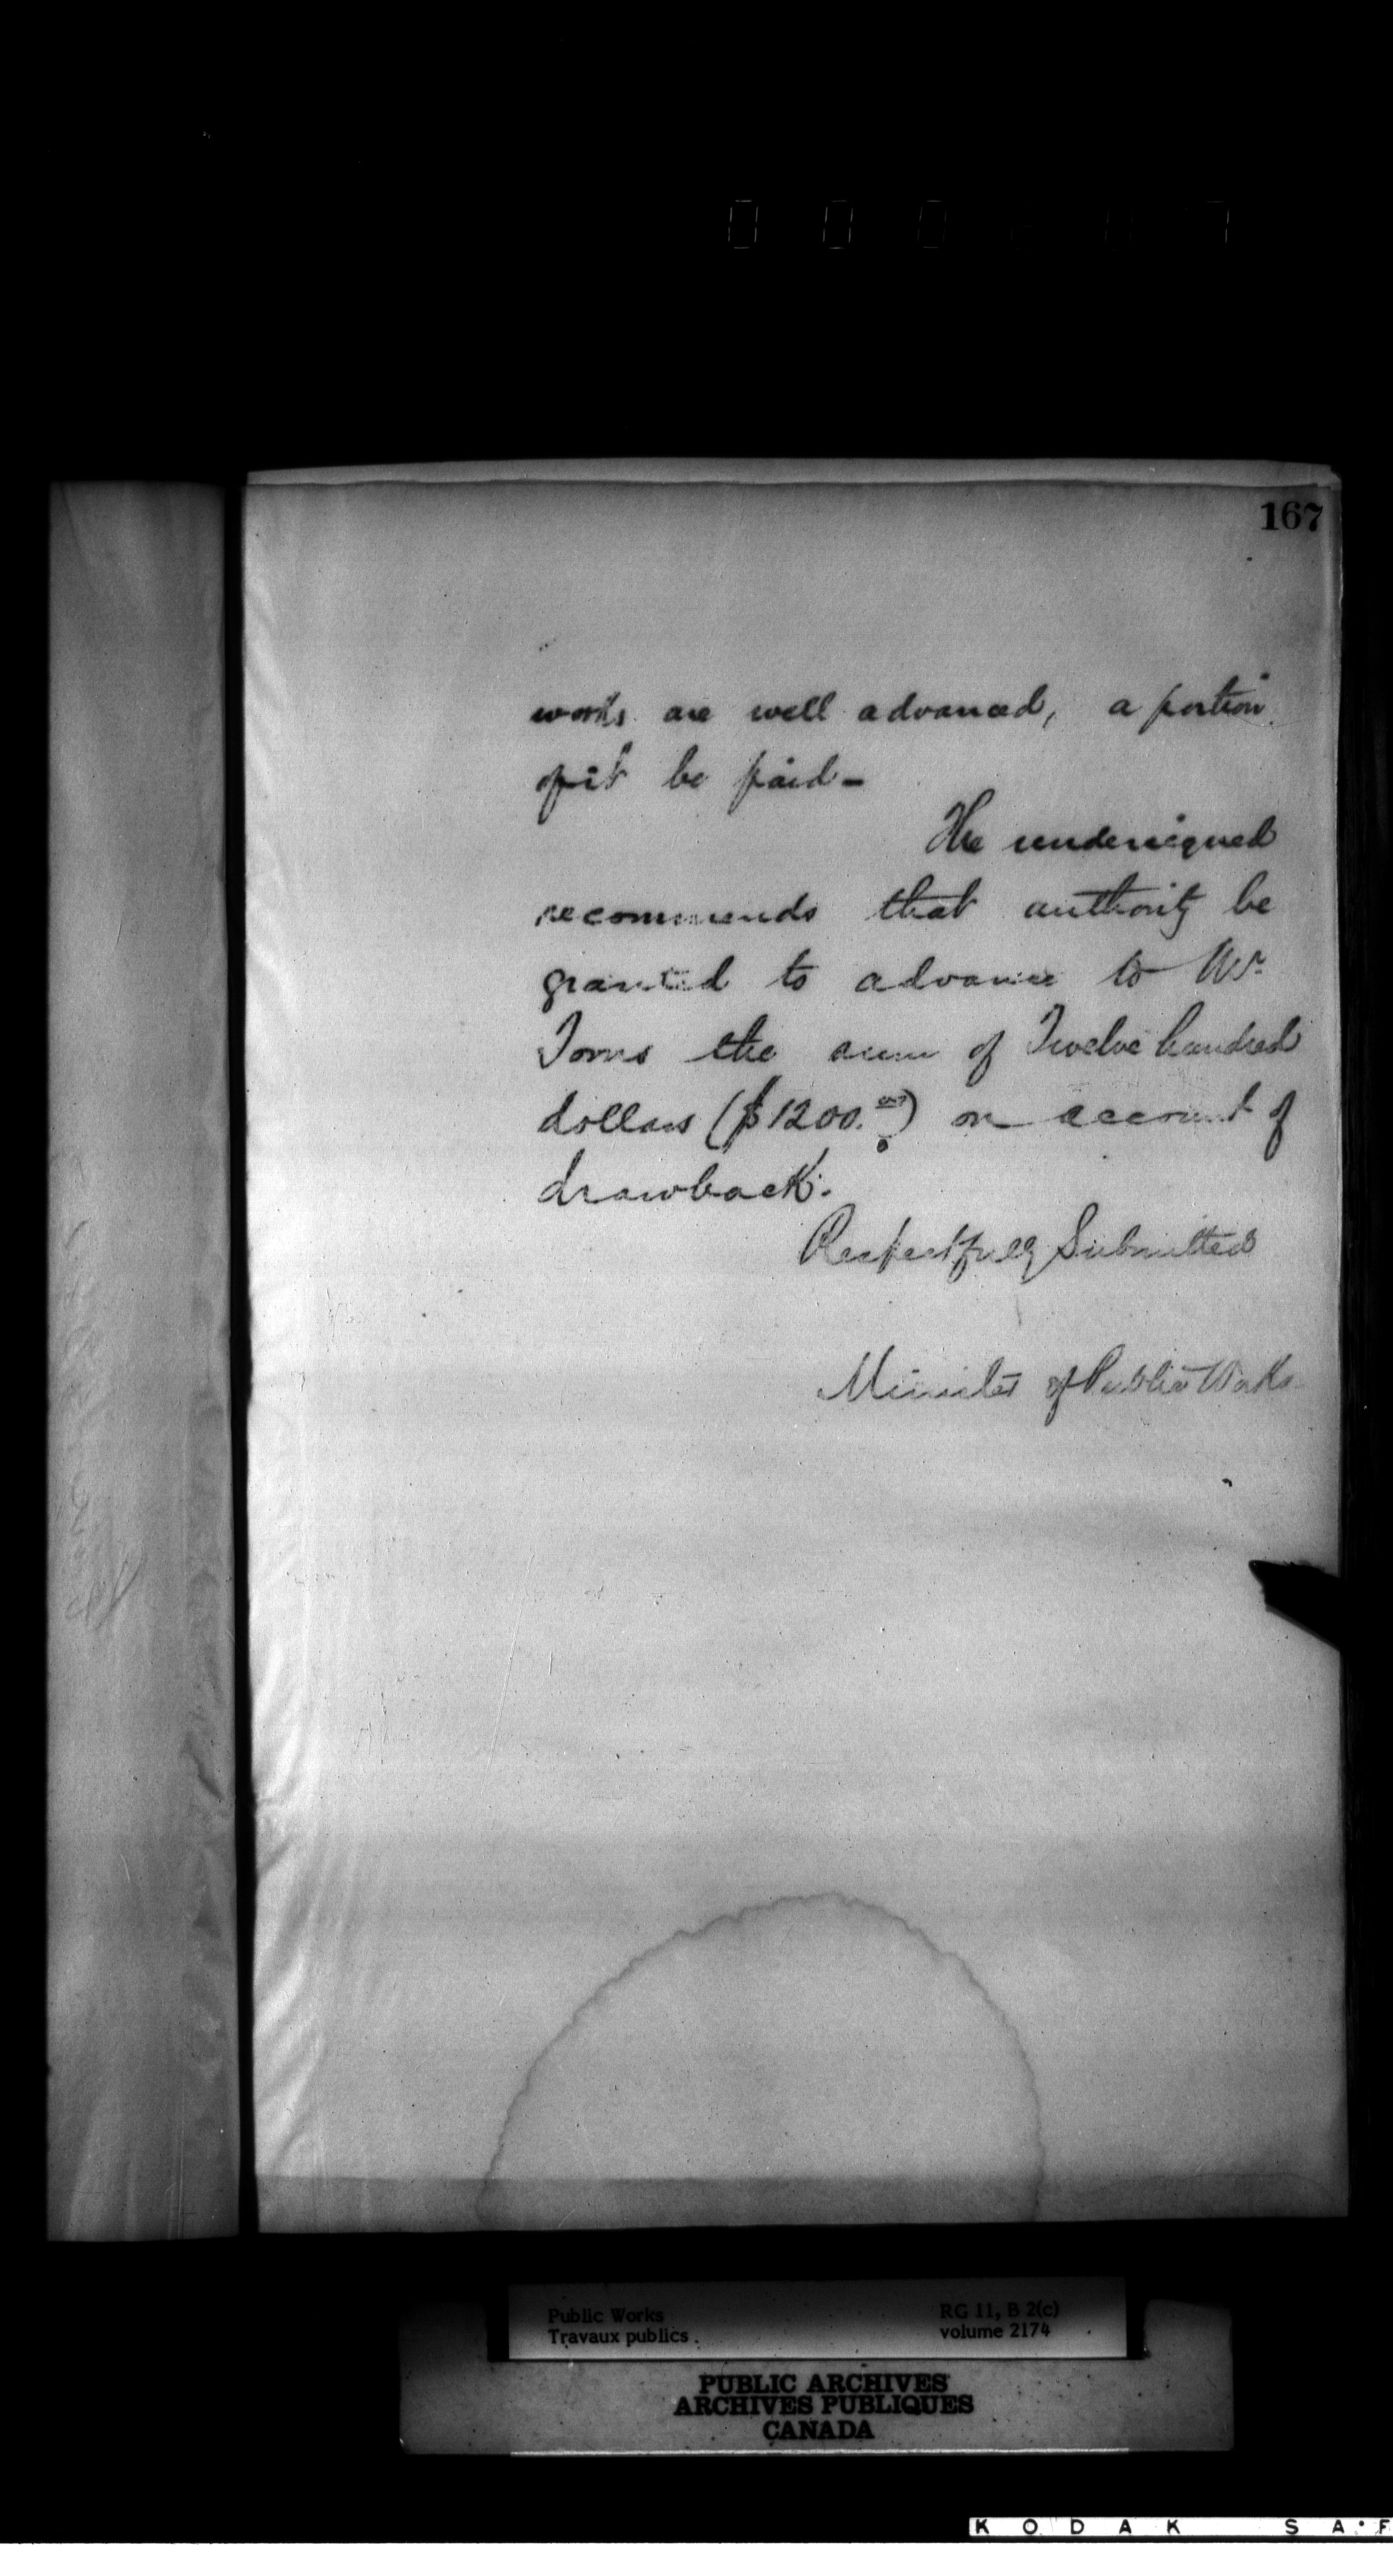 167
works are well advanced, a portion
of it be paid –
The undersigned
recommends that authority be
granted to advance to Mr
the sum of Twelve hundred
dollars ($1200.00) on account of
drawback.
Respectfully Submitted
Minister of Public Works
Public Works
Travaux publics
RG 11, B 2(c)
volume 2174
PUBLIC ARCHIVES
ARCHIVES PUBLIQUES
CANADA
KODAK SA·F